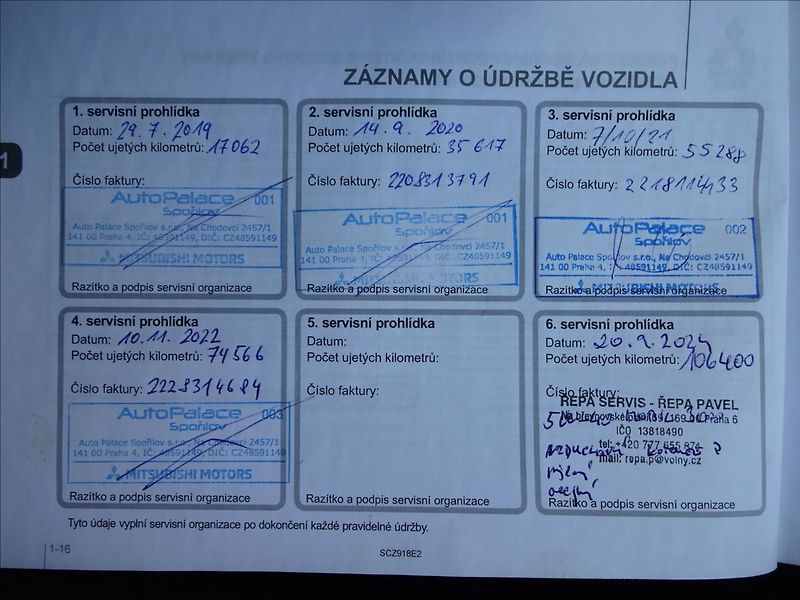 ZÁZNAMY O ÚDRŽBĚ VOZIDLA
1
1. servisní prohlídka
Datum: 29. 7. 2019
Počet ujetých kilometrů: 17062
Číslo faktury:
AutoPalace 001
Spořilov
Auto Palace Spořilov s.r.o., Na Chodovci 2457/1
141 00 Praha 4, IČ: 48591149, DIČ: CZ48591149
MITSUBISHI MOTORS
Razítko a podpis servisní organizace
2. servisní prohlídka
Datum: 14. 9. 2020
Počet ujetých kilometrů: 35617
Číslo faktury: 2208313791
AutoPalace 001
Spořilov
Auto Palace Spořilov s.r.o., Na Chodovci 2457/1
141 00 Praha 4, IČ: 48591149, DIČ: CZ48591149
MITSUBISHI MOTORS
Razítko a podpis servisní organizace
3. servisní prohlídka
Datum: 7/10/21
Počet ujetých kilometrů: 55288
Číslo faktury: 2218114433
AutoPalace 002
Spořilov
Auto Palace Spořilov s.r.o., Na Chodovci 2457/1
141 00 Praha 4, IČ: 48591149, DIČ: CZ48591149
MITSUBISHI MOTORS
Razítko a podpis servisní organizace
4. servisní prohlídka
Datum: 10. 11. 2022
Počet ujetých kilometrů: 74566
Číslo faktury: 2228314684
AutoPalace 003
Spořilov
Auto Palace Spořilov s.r.o., Na Chodovci 2457/1
141 00 Praha 4, IČ: 48591149, DIČ: CZ48591149
MITSUBISHI MOTORS
Razítko a podpis servisní organizace
5. servisní prohlídka
Datum:
Počet ujetých kilometrů:
Číslo faktury:
Razítko a podpis servisní organizace
6. servisní prohlídka
Datum: 20. 9. 2024
Počet ujetých kilometrů: 106400
Číslo faktury:
ŘEPA SERVIS - ŘEPA PAVEL
169 00 Praha 6
IČO 13818490
tel: +420 777 655 874
mail: repa.p@volny.cz
Razítko a podpis servisní organizace
Tyto údaje vyplní servisní organizace po dokončení každé pravidelné údržby.
1-16
SCZ918E2